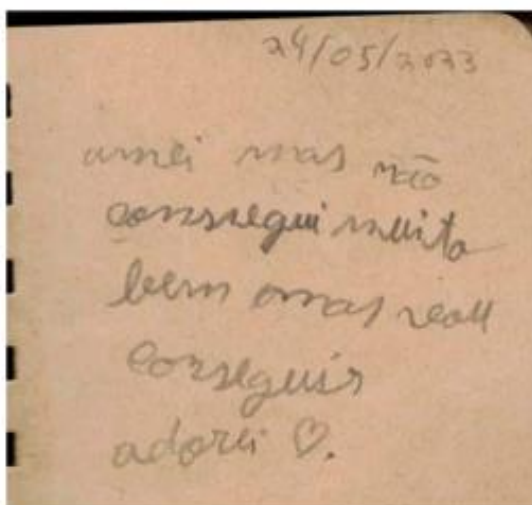 24/05/2023
amei mas não
consegui muito
bem mas
conseguir
adorei ♡.